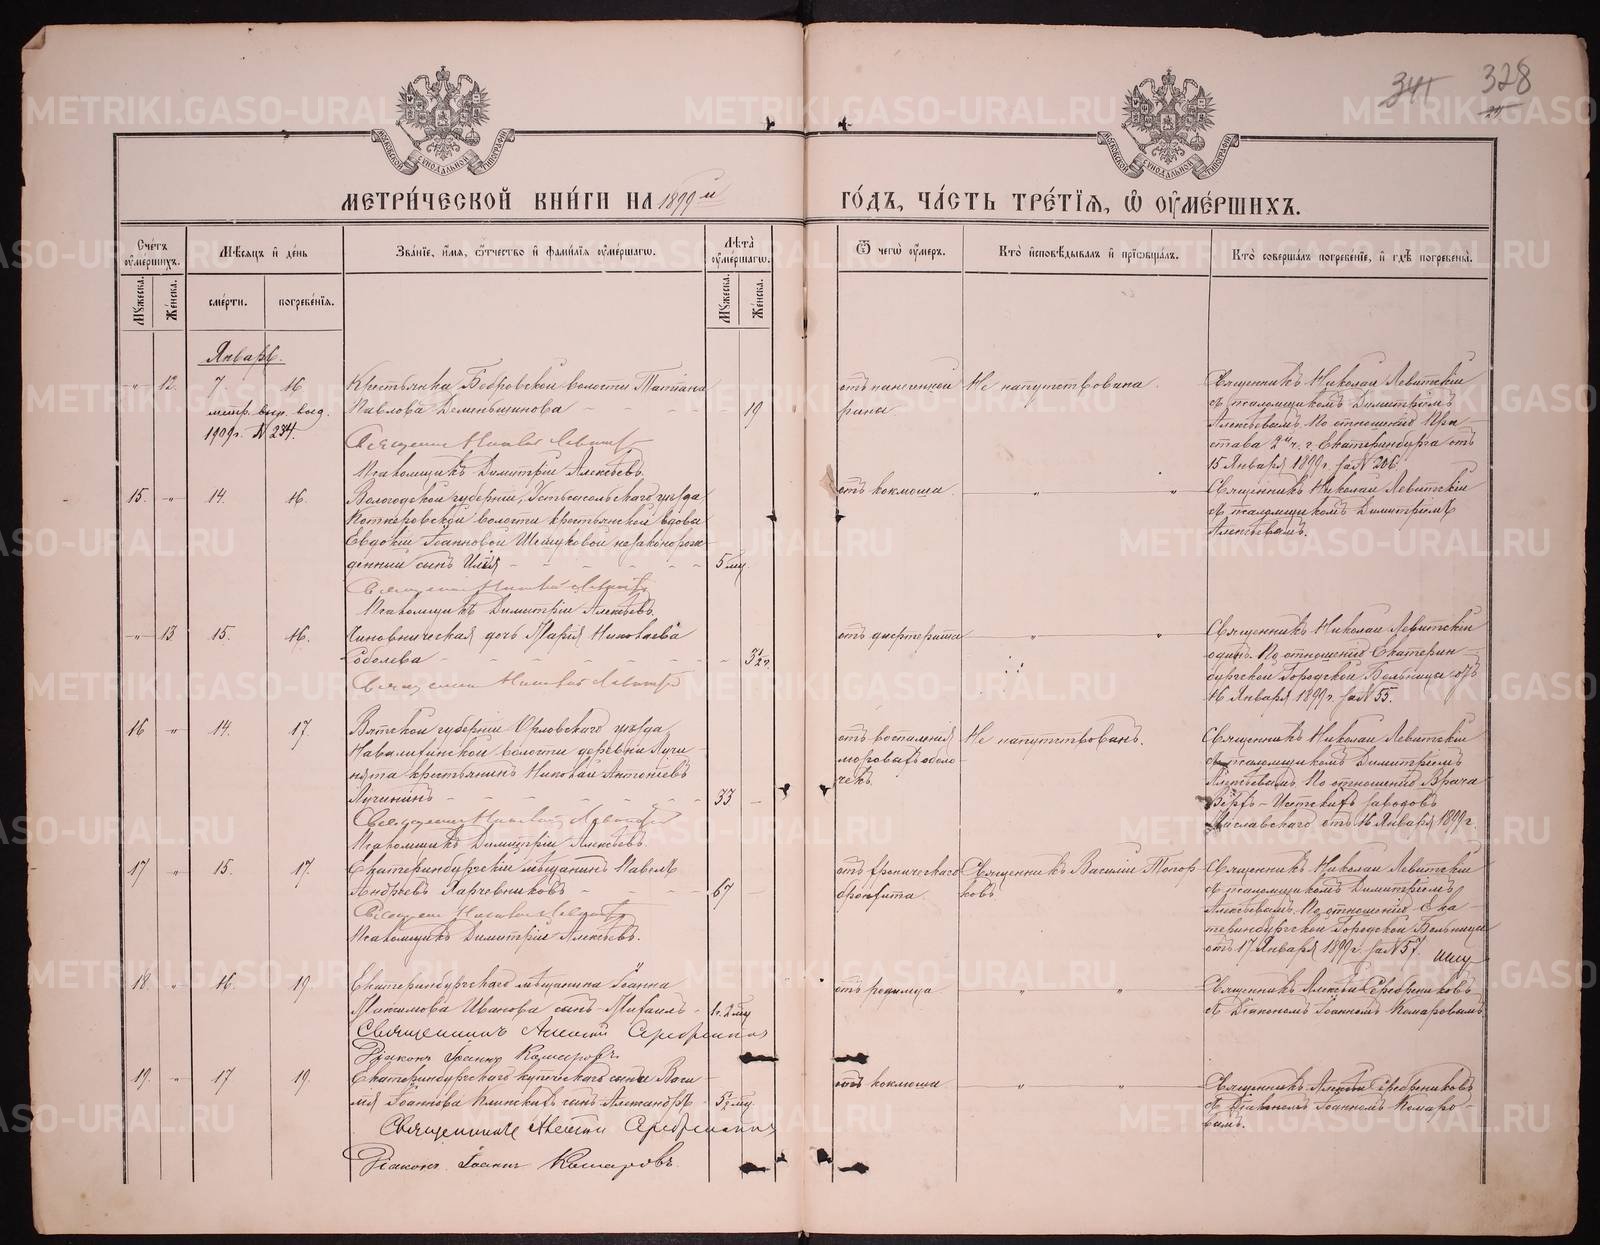 341 328
МЕТРИ́ЧЕСКОЙ КНИ́ГИ НА 1899й ГО́ДЪ, ЧА́СТЬ ТРЕ́ТІЯ, Ѽ ОУМЕ́РШИХЪ.
МОСКОВСКОЙ СУНОДАЛЬНОЙ ТИПОГРАФІИ
МОСКОВСКОЙ СУНОДАЛЬНОЙ ТИПОГРАФІИ
Счетъ оумершихъ.
Мужеска.
Женска.
Мѣсяцъ и день
смерти.
погребенія.
Званіе, имя, отчество и фамилія оумершаго.
Лѣта оумершаго.
Мужеска.
Женска.
Ѿ чегѡ оумеръ.
Кто исповѣдывалъ и пріобщалъ.
Кто совершалъ погребеніе, и гдѣ погребены.
Январь.
" 12. 7. 16
метр. вып. выд.
1909 г. № 234.
Крестьянка Бобровской волости Татіана
Павлова Деменьшинова 19
Псаломщикъ Димитрій Алексѣевъ.
отъ нанесенной
раны
Не напутствована.
Священникъ Николай Левитскій
съ псаломщикомъ Димитріемъ
Алексѣевымъ. По отношенію При-
става 2й ч. г. Екатеринбурга отъ
15 Января 1899 г. за № 206.
15. " 14. 16
Вологодской губерніи, Устьсысольскаго уѣзда
волости крестьянской вдовы
Евдокіи Іоанновой незаконорож-
денный сынъ Илія 5 мц.
Псаломщикъ Димитрій Алексѣевъ.
отъ коклюша. " "
Священникъ Николай Левитскій
съ псаломщикомъ Димитріемъ
Алексѣевымъ.
" 13 15. 16.
Чиновническая дочь Марія Николаева
Соболева 3 1/2 г.
отъ дифтерита " "
Священникъ Николай Левитскій
одинъ. По отношенію Екатерин-
бургской Городской Больницы отъ
16 Января 1899 г. за № 55.
16 " 14. 17.
Вятской губерніи Орловскаго уѣзда,
волости деревни Лучи-
нята крестьянинъ Николай Антоніевъ
Лучининъ 33
Псаломщикъ Димитрій Алексѣевъ.
отъ воспаленія
мозговыхъ оболо-
чекъ.
Не напутствованъ.
Священникъ Николай Левитскій
съ псаломщикомъ Димитріемъ
Алексѣевымъ. По отношенію Врача
Верхъ-Исетскихъ заводовъ
отъ 16 Января 1899 г.
17 " 15. 17.
Екатеринбургскій мѣщанинъ Павелъ
Андреевъ Харчевниковъ 67
Псаломщикъ Димитрій Алексѣевъ.
отъ хроническаго
бронхита.
Священникъ Василій Топор-
ковъ.
Священникъ Николай Левитскій
съ псаломщикомъ Димитріемъ
Алексѣевымъ. По отношенію Ека-
теринбургской Городской Больницы
отъ 17 Января 1899 г. за № 57.
18. " 16. 19
Екатеринбургскаго мѣщанина Іоанна
Иванова сынъ Михаилъ 1 г. 2 мц
Священникъ Алексій Серебренниковъ
Діаконъ Іоаннъ Комаровъ.
отъ родимца " "
Священникъ Алексій Серебренниковъ
съ Діакономъ Іоанномъ Комаровымъ
19. " 17 19.
Екатеринбургскаго купеческаго сына Васи-
лія Іоаннова сынъ Александръ 5 1/2 мц
Священникъ Алексій Серебренниковъ
Діаконъ Іоаннъ Комаровъ.
отъ коклюша " "
Священникъ Алексій Серебренниковъ
съ Діакономъ Іоанномъ Комаро-
вымъ.
METRIKI.GASO-URAL.RU